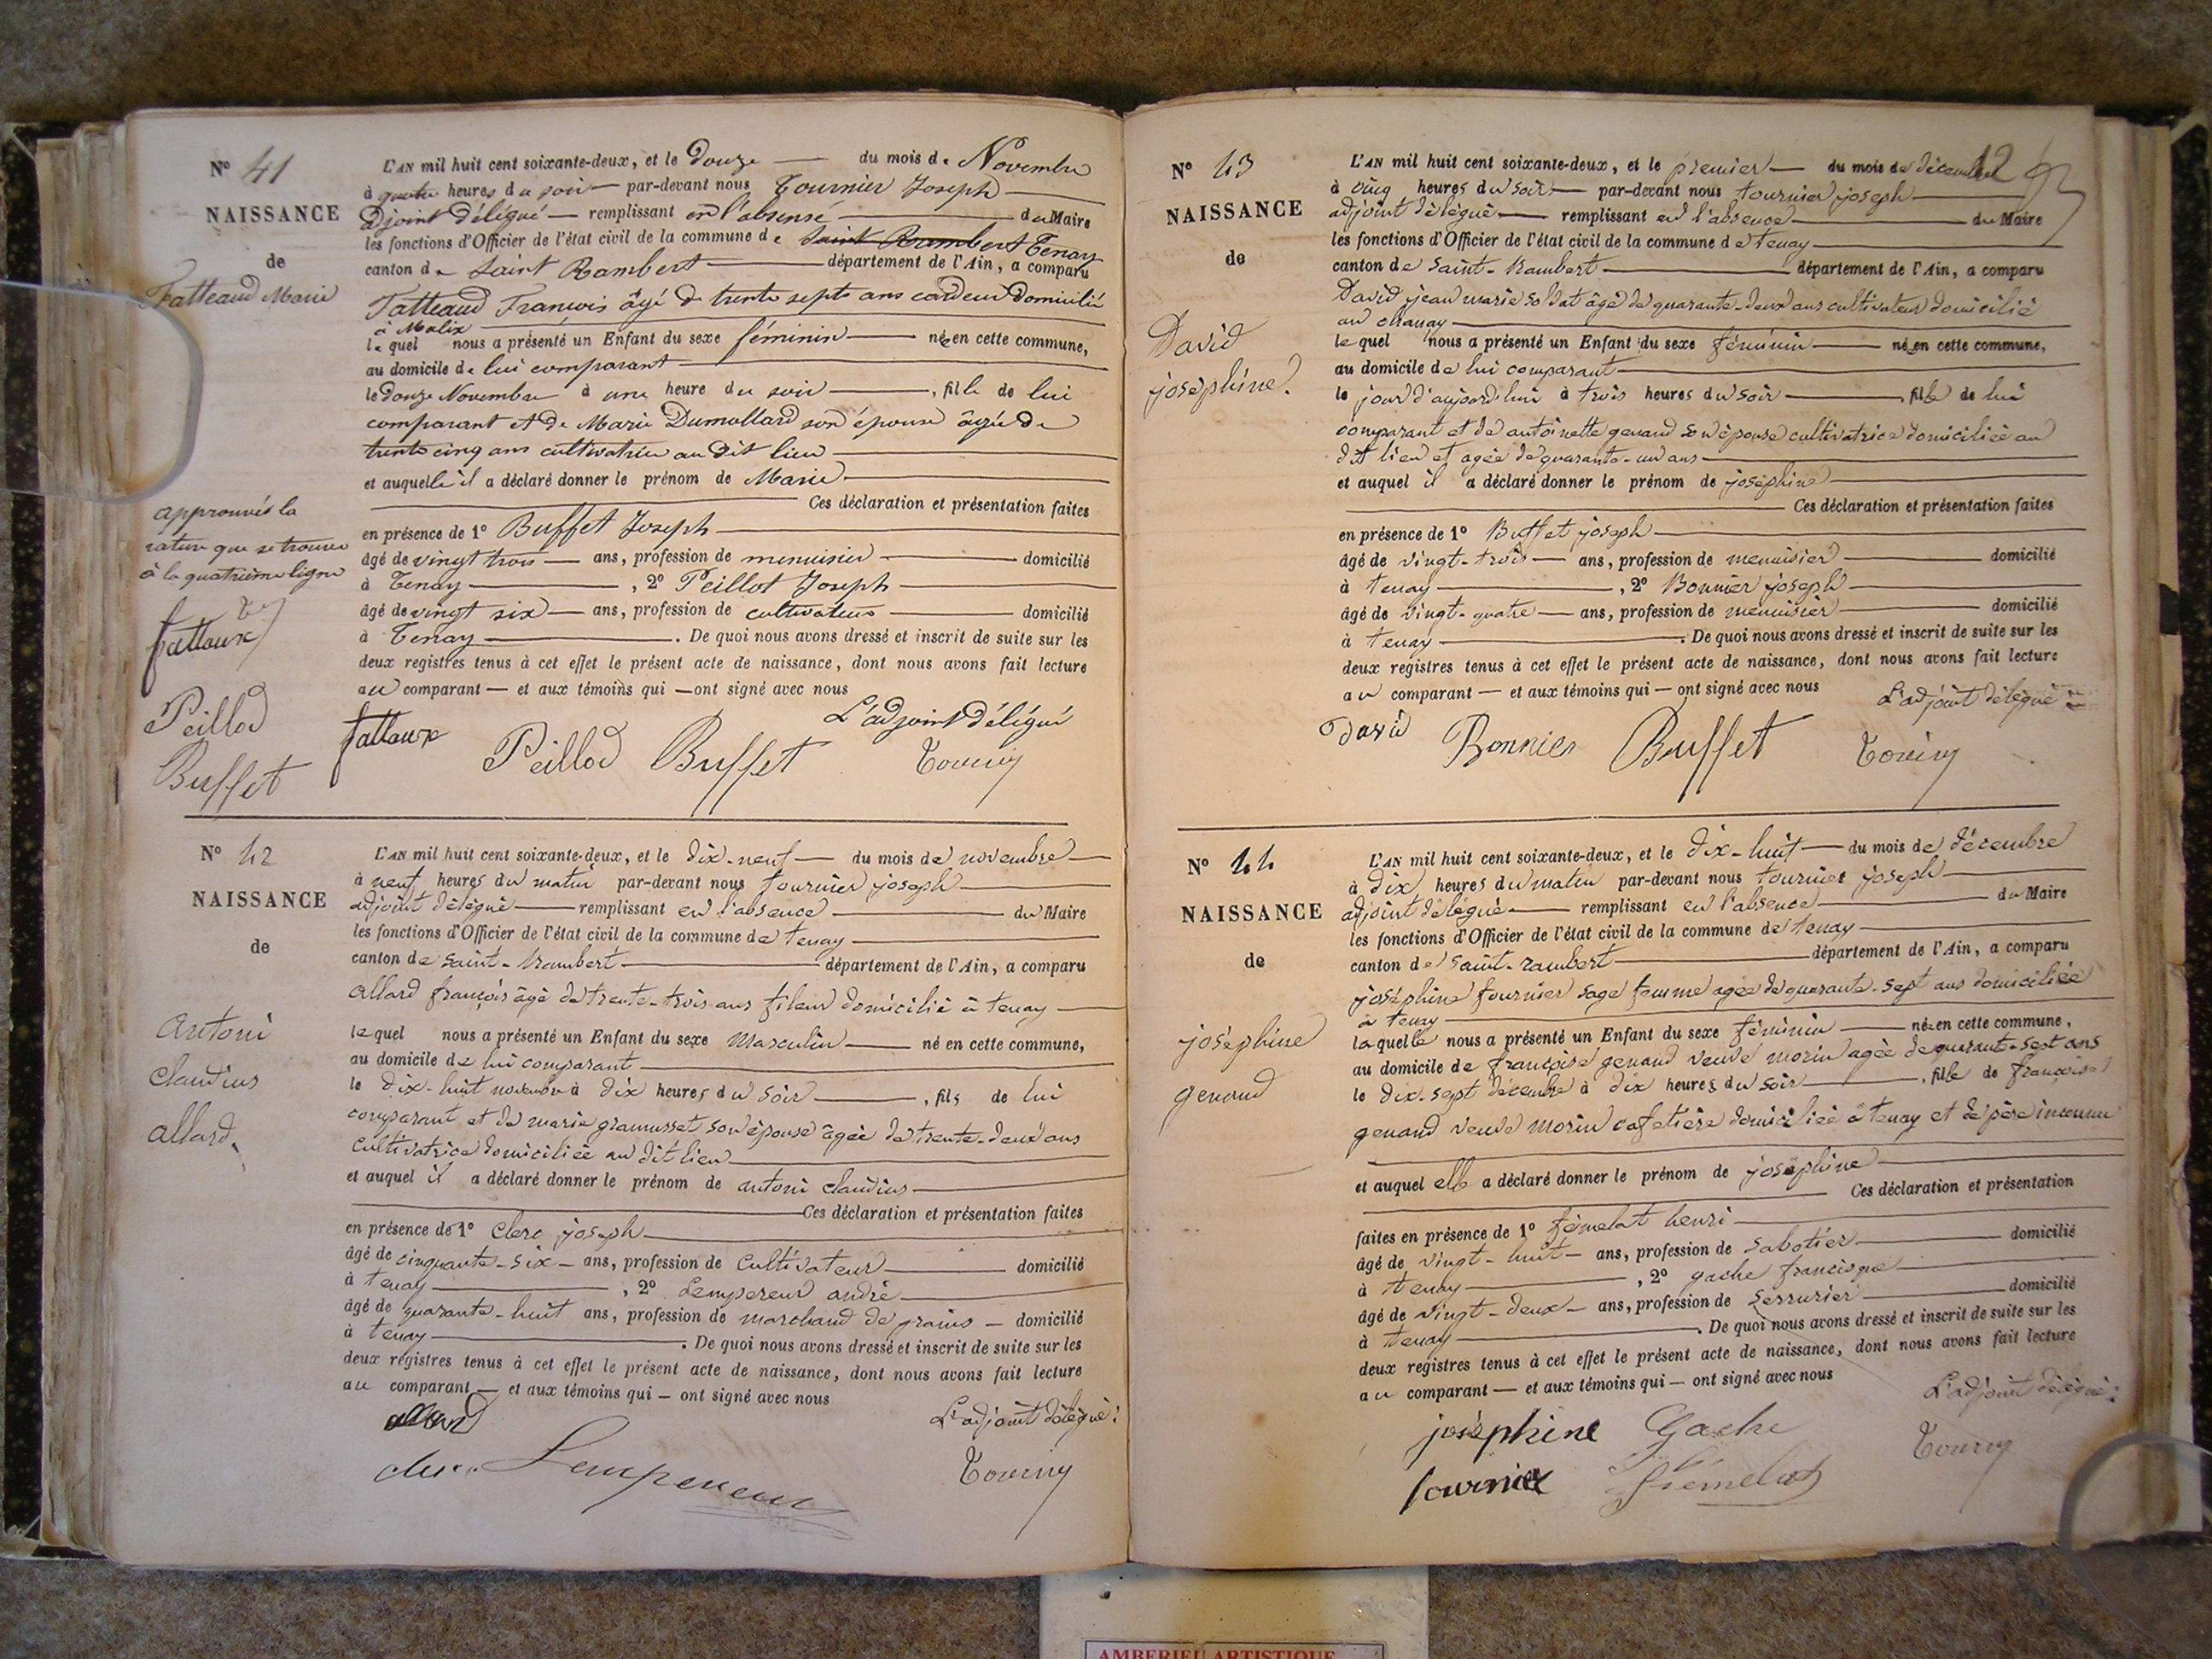 N° 41
NAISSANCE
de
Fatteaud Marie
L'AN mil huit cent soixante-deux, et le Douze du mois de Novembre
à quatre heures du soir par-devant nous Tournier Joseph
Adjoint délégué remplissant en l'absense du Maire
les fonctions d'Officier de l'état civil de la commune de Saint Rambert Tenay
canton de Saint Rambert département de l'Ain, a comparu
Fatteaud François âgé de trente septs ans cardeur domicilié
à Malix
lequel nous a présenté un Enfant du sexe féminin née en cette commune,
au domicile de lui comparant
le Douze Novembre à une heure du soir, fille de lui
comparant et de Marie Dumollard son épouse âgée de
trente cinq ans cultivatrice au dit lieu
et auquelle il a déclaré donner le prénom de Marie
Ces déclaration et présentation faites
en présence de 1° Buffet Joseph
âgé de vingt trois ans, profession de menuisier domicilié
à Tenay, 2° Peillot Joseph
âgé de vingt six ans, profession de cultivateur domicilié
à Tenay. De quoi nous avons dressé et inscrit de suite sur les
deux registres tenus à cet effet le présent acte de naissance, dont nous avons fait lecture
au comparant — et aux témoins qui — ont signé avec nous
L'adjoint délégué
fattaux Peillod Buffet
approuvés la
rature que se trouve
à la quatrième ligne
fattaux
Peillod
Buffet
N° 42
NAISSANCE
de
Antoni
claudius
allard
L'AN mil huit cent soixante-deux, et le dix-neuf du mois de novembre
à neuf heures du matin par-devant nous tournier joseph
adjoint délégué remplissant en l'absence du Maire
les fonctions d'Officier de l'état civil de la commune de tenay
canton de saint-rambert département de l'Ain, a comparu
allard françois âgé de trente-trois ans fileur domicilié à tenay
lequel nous a présenté un Enfant du sexe Masculin né en cette commune,
au domicile de lui comparant
le dix-huit novembre à dix heures du soir, fils de lui
comparant et de marie gramusset son épouse âgée de trente-deux ans
cultivatrice domiciliée au dit lieu
et auquel il a déclaré donner le prénom de antoni claudius
Ces déclaration et présentation faites
en présence de 1° Clerc joseph
âgé de cinquante-six ans, profession de cultivateur domicilié
à tenay, 2° Lempereur andré
âgé de quarante-huit ans, profession de marchand de grains domicilié
à tenay. De quoi nous avons dressé et inscrit de suite sur les
deux régistres tenus à cet effet le présent acte de naissance, dont nous avons fait lecture
au comparant — et aux témoins qui — ont signé avec nous
allard L'adjoint délégué:
Lempereur
N° 43
NAISSANCE
de
David
joséphine
L'AN mil huit cent soixante-deux, et le premier du mois de décembre 12
à cinq heures du soir par-devant nous tournier joseph
adjoint délégué remplissant en l'absence du Maire
les fonctions d'Officier de l'état civil de la commune de tenay
canton de saint-Rambert département de l'Ain, a comparu
David jean marie soldat âgé de quarante-deux ans cultivateur domicilié
au chanay
lequel nous a présenté un Enfant du sexe féminin née en cette commune,
au domicile de lui comparant
le jour d'aujourd'hui à trois heures du soir, fille de lui
comparant et de antoinette genand son épouse cultivatrice domiciliée au
dit lieu et agée de quarante-un ans
et auquel il a déclaré donner le prénom de joséphine
Ces déclaration et présentation faites
en présence de 1° Buffet joseph
âgé de vingt-trois ans, profession de menuisier domicilié
à tenay, 2° Bonnier joseph
âgé de vingt-quatre ans, profession de menuisier domicilié
à tenay. De quoi nous avons dressé et inscrit de suite sur les
deux registres tenus à cet effet le présent acte de naissance, dont nous avons fait lecture
au comparant — et aux témoins qui — ont signé avec nous
L'adjoint délégué:
David Bonnier Buffet
N° 44
NAISSANCE
de
joséphine
genand
L'AN mil huit cent soixante-deux, et le dix-huit du mois de décembre
à dix heures du matin par-devant nous tournier joseph
adjoint délégué remplissant en l'absence du Maire
les fonctions d'Officier de l'état civil de la commune de tenay
canton de saint-rambert département de l'Ain, a comparu
joséphine fournier sage femme agée de quarante-sept ans domiciliée
à tenay
laquelle nous a présenté un Enfant du sexe féminin née en cette commune,
au domicile de françoise genand veuve morin agée de quarante-sept ans
le dix-sept décembre à dix heures du soir, fille de françoise
genand veuve morin cafetière domiciliée à tenay et de père inconnu
et auquel elle a déclaré donner le prénom de joséphine
Ces déclaration et présentation
faites en présence de 1° fémelat henri
âgé de vingt-huit ans, profession de sabotier domicilié
à tenay, 2° gache francisque
âgé de vingt-deux ans, profession de serrurier domicilié
à tenay. De quoi nous avons dressé et inscrit de suite sur les
deux registres tenus à cet effet le présent acte de naissance, dont nous avons fait lecture
au comparant — et aux témoins qui — ont signé avec nous
L'adjoint délégué:
joséphine Gache
fournier fémelat
AMBERIEU ARTISTIQUE